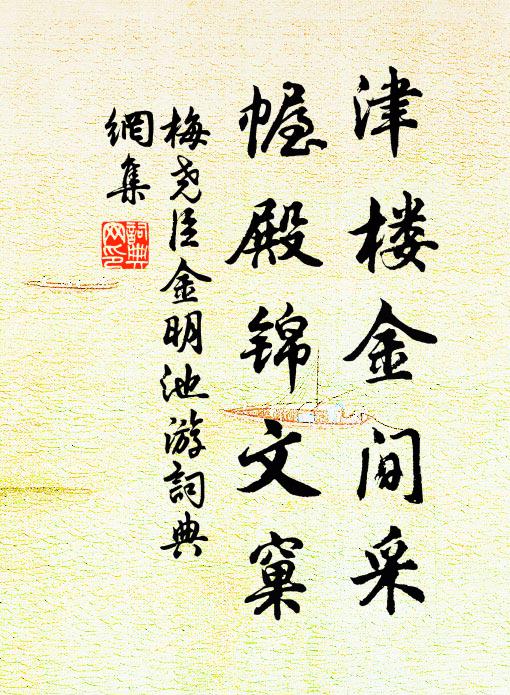 津楼金间采
幄殿锦文窠
梅尧臣金明池游词典
網集
词典网印